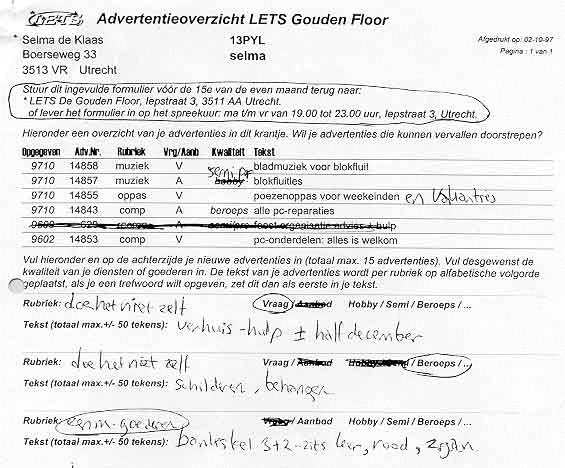 LETS Advertentieoverzicht LETS Gouden Floor
* Selma de Klaas 13PYL Afgedrukt op: 02-10-97
Boerseweg 33 selma Pagina: 1 van 1
3513 VR Utrecht
Stuur dit ingevulde formulier vóór de 15e van de even maand terug naar:
* LETS De Gouden Floor, Iepstraat 3, 3511 AA Utrecht.
of lever het formulier in op het spreekuur: ma t/m vr van 19.00 tot 23.00 uur, Iepstraat 3, Utrecht.
Hieronder een overzicht van je advertenties in dit krantje. Wil je advertenties die kunnen vervallen doorstrepen?
Opgegeven Adv.Nr. Rubriek Vrg/Aanb Kwaliteit Tekst
9710 14858 muziek V bladmuziek voor blokfluit
semipr
9710 14857 muziek A hobby blokfluitles
9710 14855 oppas V poezenoppas voor weekeinden en vakanties
9710 14843 comp A beroeps alle pc-reparaties
9609 629 A semiprof feest organisatie advies + hulp
9602 14853 comp V pc-onderdelen: alles is welkom
Vul hieronder en op de achterzijde je nieuwe advertenties in (totaal max. 15 advertenties). Vul desgewenst de
kwaliteit van je diensten of goederen in. De tekst van je advertenties wordt per rubriek op alfabetische volgorde
geplaatst, als je een trefwoord wilt opgeven, zet dit dan als eerste in je tekst.
Rubriek: doe het niet zelf Vraag / Aanbod Hobby / Semi / Beroeps / ...
Tekst (totaal max.+/- 50 tekens): verhuis-hulp ± half december
Rubriek: doe het niet zelf Vraag / Aanbod Hobby / Semi / Beroeps / ...
Tekst (totaal max.+/- 50 tekens): schilderen, behangen
Rubriek: goederen Vraag / Aanbod Hobby / Semi / Beroeps / ...
Tekst (totaal max.+/- 50 tekens): bankstel 3+2-zits leer, rood,